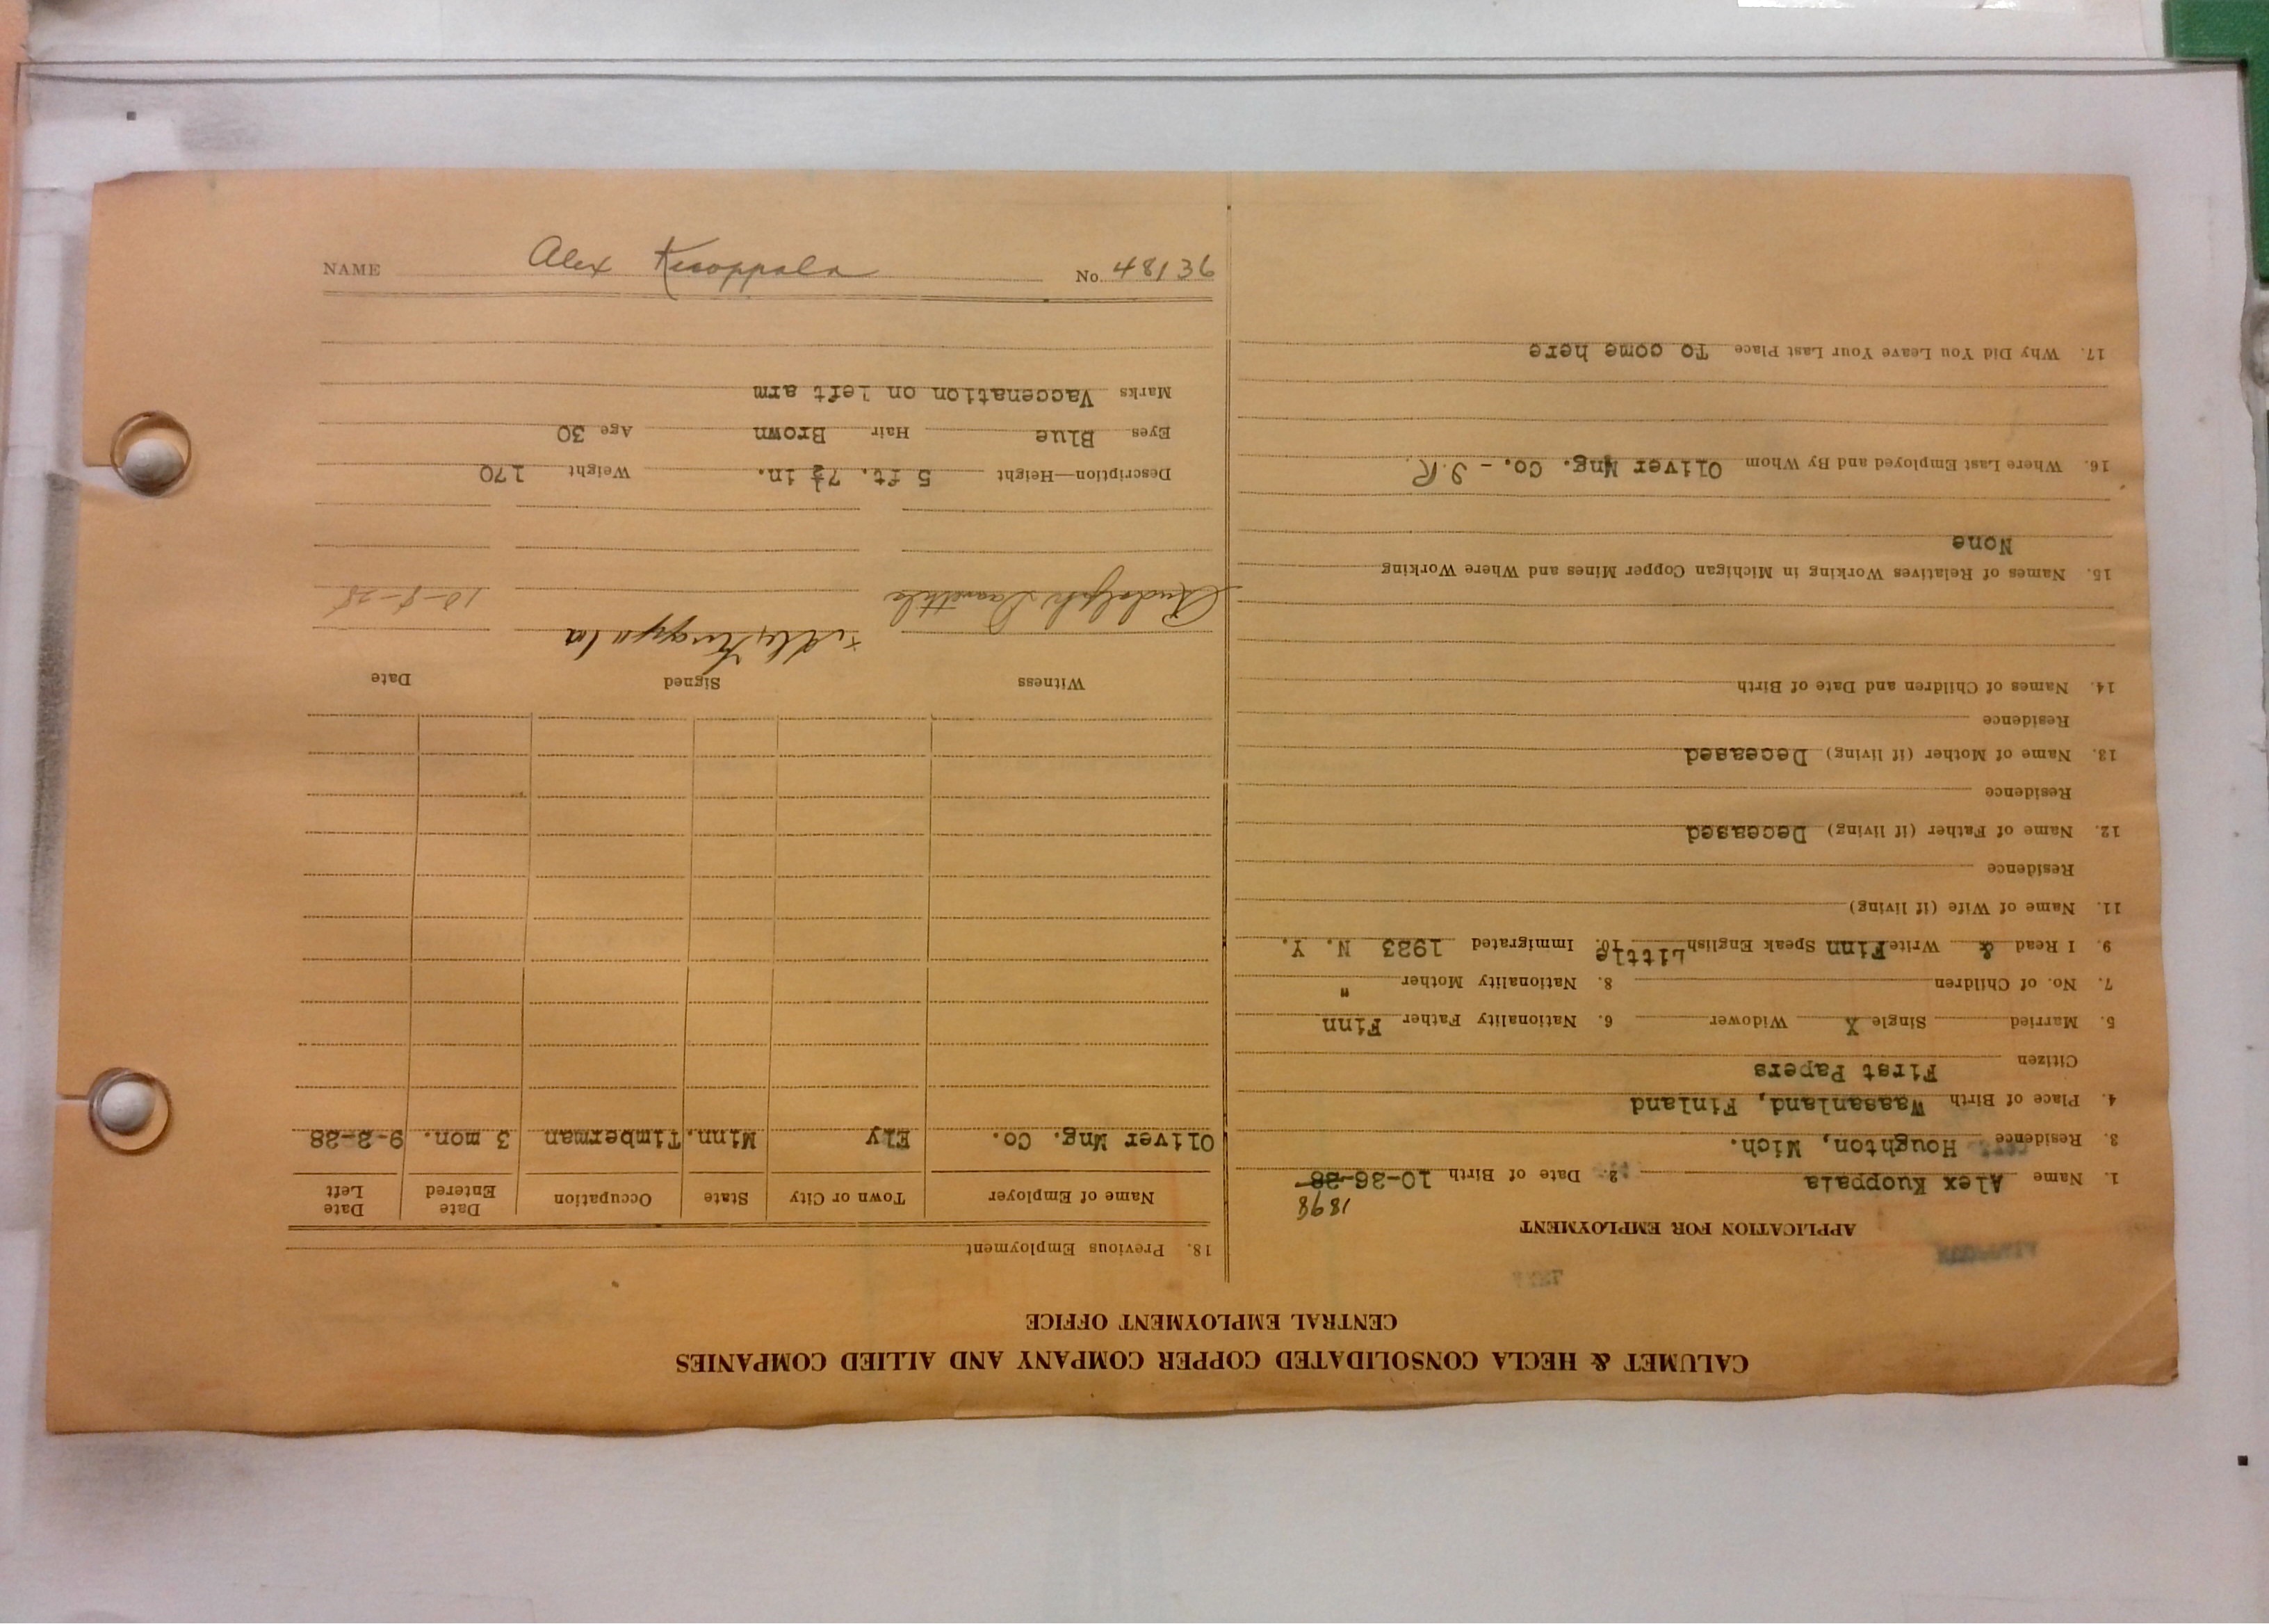 CALUMET & HECLA CONSOLIDATED COPPER COMPANY AND ALLIED COMPANIES
CENTRAL EMPLOYMENT OFFICE
APPLICATION FOR EMPLOYMENT
1898
1. Name Alex Kuoppala 2. Date of Birth 10-26-28
3. Residence Houghton, Mich.
4. Place of Birth Waasanland, Finland
First Papers
Citizen
5. Married Single X Widower 6. Nationality Father Finn
7. No. of Children 8. Nationality Mother "
9. I Read & Write Finn Speak English Little 10. Immigrated 1923 N. Y.
11. Name of Wife (if living)
Residence
12. Name of Father (if living) Deceased
Residence
13. Name of Mother (if living) Deceased
Residence
14. Names of Children and Date of Birth
15. Names of Relatives Working in Michigan Copper Mines and Where Working
None
16. Where Last Employed and By Whom Oliver Mng. Co. - I.R.
17. Why Did You Leave Your Last Place To come here
18. Previous Employment
Name of Employer Town or City State Occupation Date Entered Date Left
Oliver Mng. Co. Ely Minn. Timberman 3 mon. 9-2-28
Witness Signed Date
Rudolph x Alex Kuoppala 10-8-28
Description—Height 5 ft. 7½ in. Weight 170
Eyes Blue Hair Brown Age 30
Marks Vaccenation on left arm
NAME Alex Kuoppala No. 48136